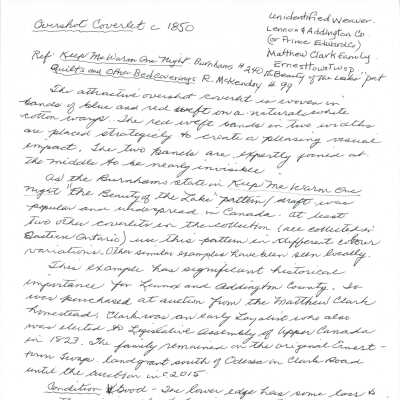 Overshot Coverlet c 1850
unidentified Weaver.
Lennox & Addington Co.
(or Prince Edward Co)
Matthew Clark Family
Ernesttown Twsp
Ref: Keep Me Warm One Night Burnhams #240 "Beauty of the Lake" patt
Quilts and Other Bedcoverings R. McKendry #99
The attractive overshot coverlet is woven in
bands of blue and red weft on a natural white
cotton warp. The red weft bands in two widths
are placed strategically to create a pleasing visual
impact. The two panels are expertly joined at
the middle to be nearly invisible
As the Burnhams state in Keep Me Warm One
Night "the Beauty of the Lake" pattern/draft was
popular and widespread in Canada. At least
two other coverlets in the collection (all collected in
Eastern Ontario) use this pattern in different colour
variations. Other similar examples have been seen locally.
This example has significant historical
importance for Lennox and Addington County. It
was purchased at auction from the Matthew Clark
homestead. Clark was an early Loyalist who also
was elected to Legislative Assembly of Upper Canada
in 1823. The family remained on the original Ernest-
town Twsp. land grant south of Odessa in Clark Road
until the auction in c 2015
Condition Good - The lower edge has some loss &